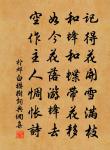 記得花開雪滿枝
和蜂和蝶帶花移
如今花落游蜂去
空作主人惆悵詩
白櫻樹詞典網